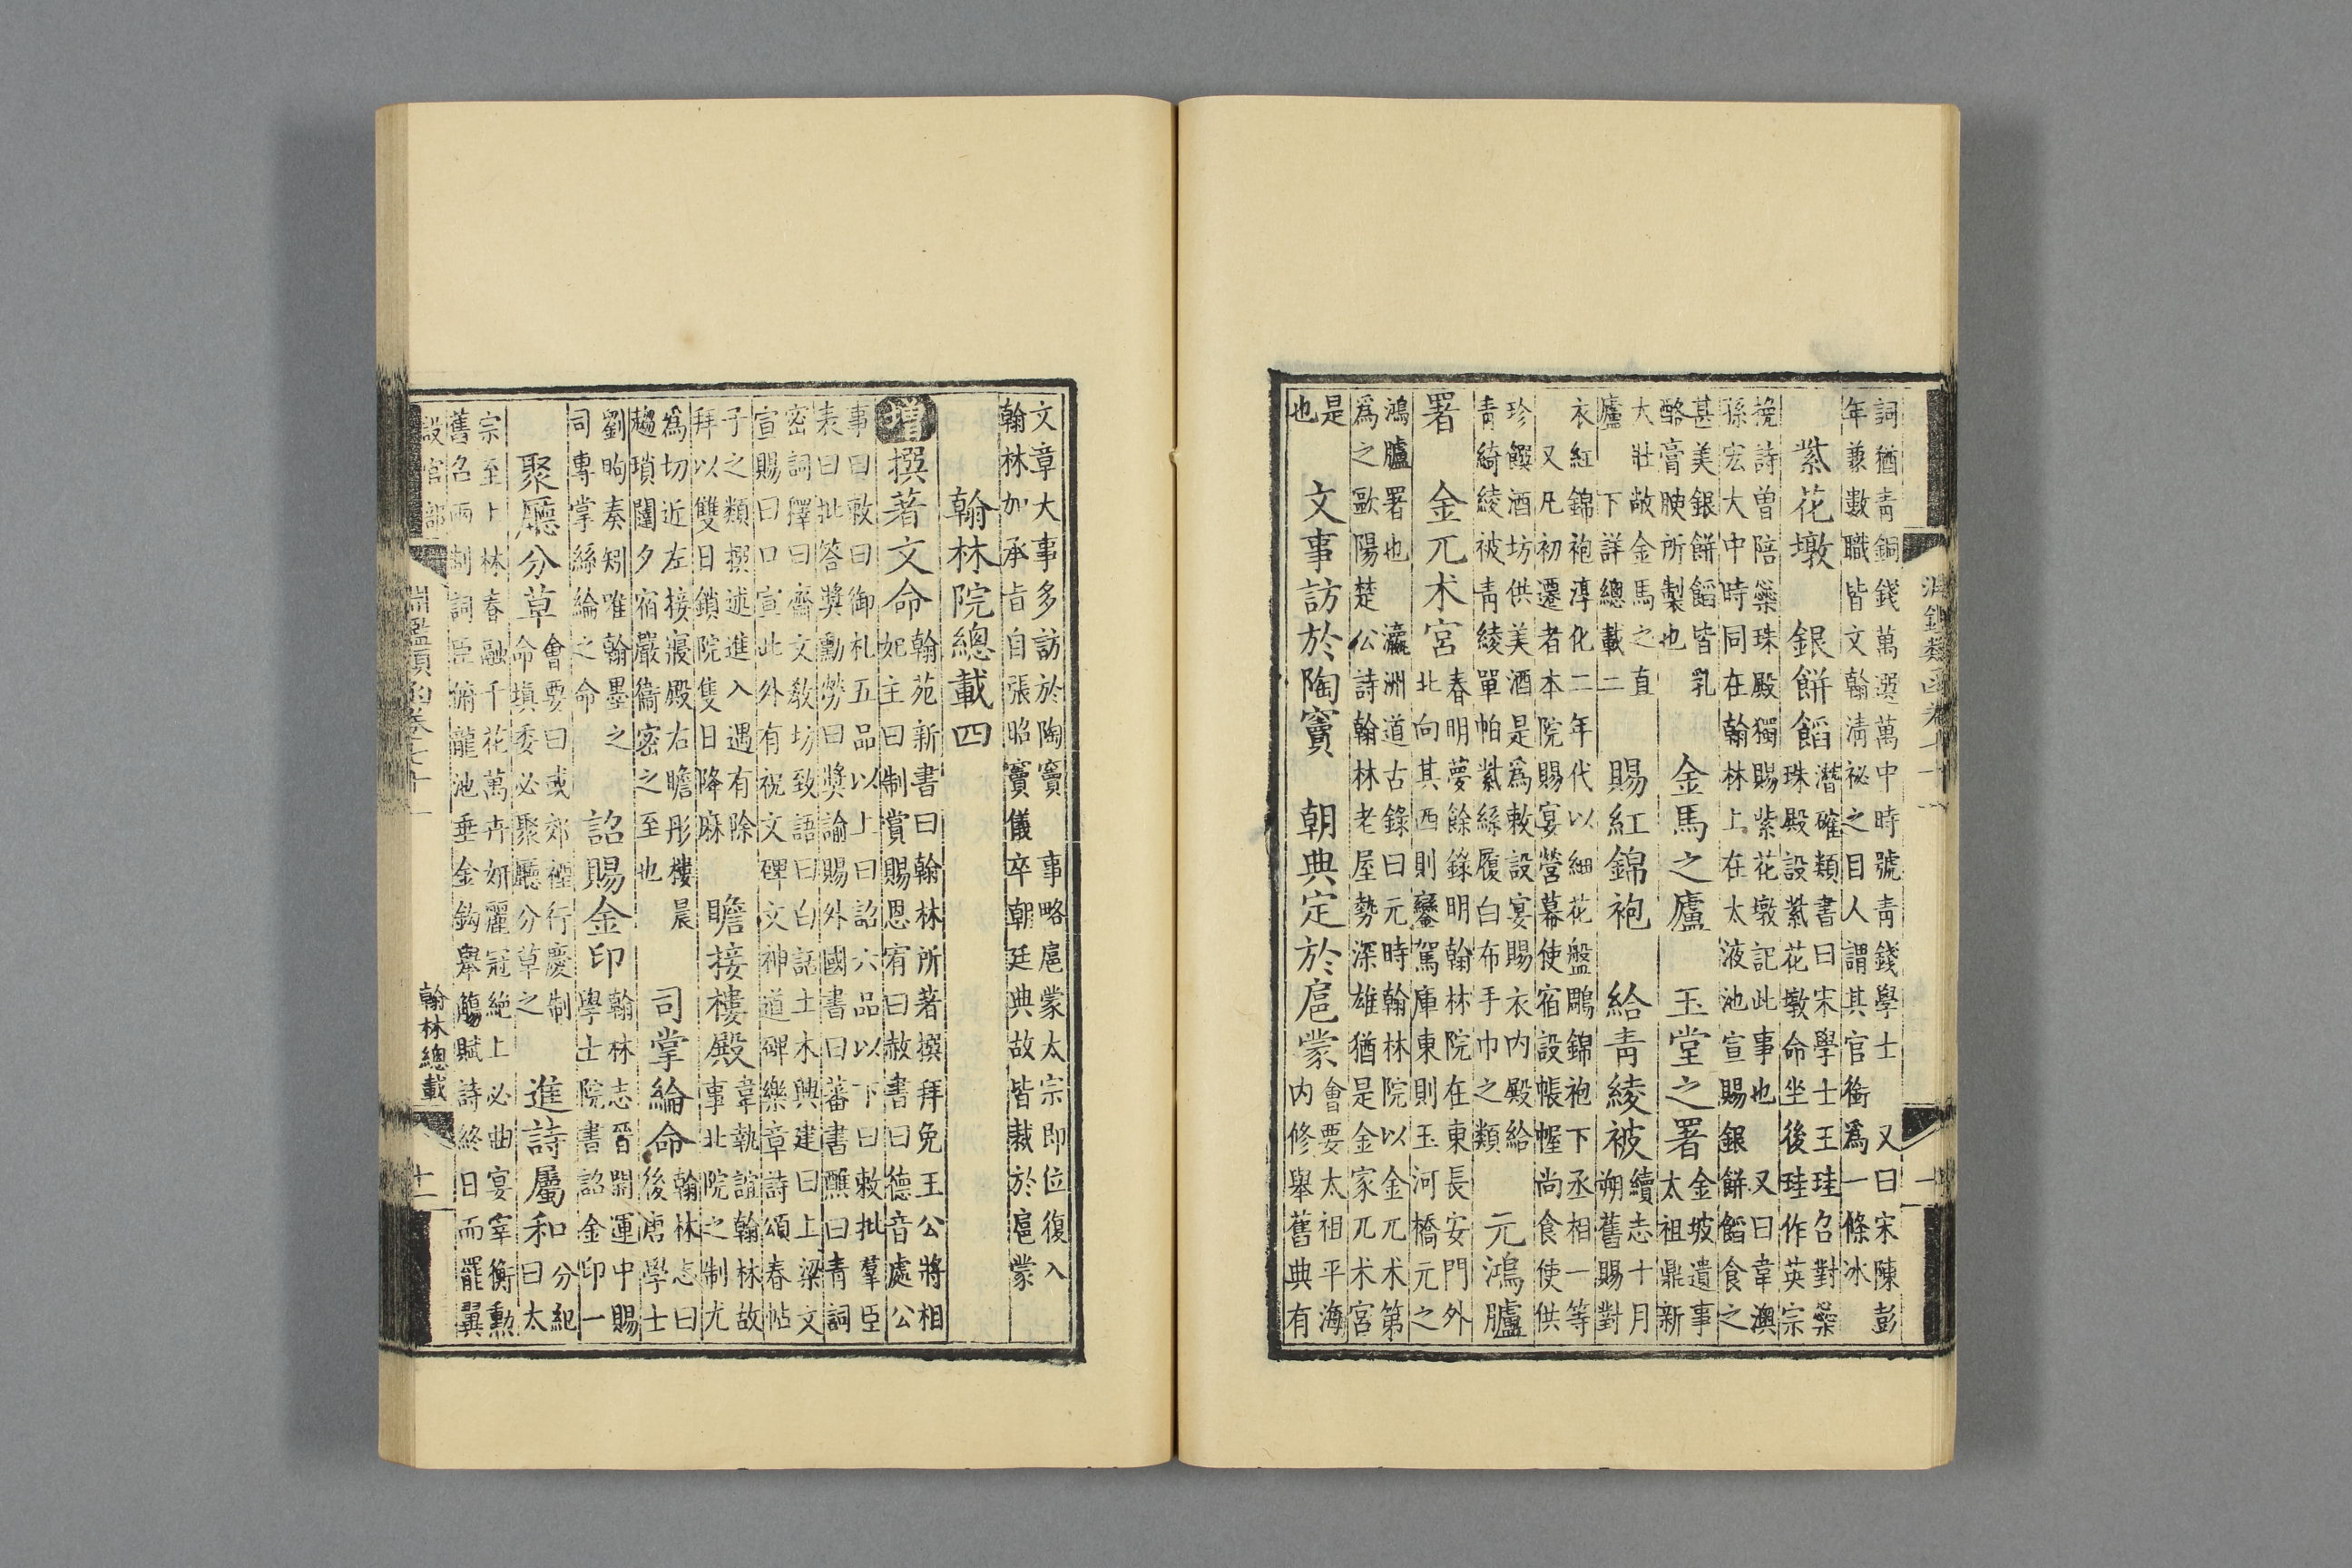 淵鑑類函卷七十一
詞猶青銅錢萬選萬中時號青錢學士 又曰宋陳彭
年兼數職皆文翰清祕之目人謂其官銜爲一條冰
紫花墩 銀餅餡 潛確類書曰宋學士王珪召對蘂
珠殿設紫花墩命坐後珪作英宗
挽詩曾陪蘂珠殿獨賜紫花墩記此事也 又曰韋澳
孫宏大中時同在翰林上在太液池宣賜銀餅餡食之
甚美銀餅餡皆乳
酪膏腴所製也 金馬之廬 玉堂之署 金坡遺事
太祖鼎新
大壯敞金馬之直
廬下詳總載二 賜紅錦袍 給青綾被 續志十月
朔舊賜對
衣紅錦袍淳化二年代以細花盤鵰錦袍下丞相一等
又凡初遷者本院賜宴營幕使宿設帳幄尚食使供
珍饌酒坊供美酒是爲敕設宴賜衣内殿給
青綺綾被青綾單帕紫絲履白布手巾之類 元鴻臚
署 金兀朮宮 春明夢餘錄明翰林院在東長安門外
北向其西則鑾駕庫東則玉河橋元之
鴻臚署也 瀛洲道古錄曰元時翰林院以金兀朮第
爲之歐陽楚公詩翰林老屋勢深雄猶是金家兀朮宮
是
也 文事訪於陶竇 朝典定於扈蒙 會要太祖平海
内修舉舊典有
文章大事多訪於陶竇 事略扈蒙太宗即位復入
翰林加承旨自張昭竇儀卒朝廷典故皆裁於扈蒙
翰林院總載四
增 撰著文命 翰苑新書曰翰林所著撰拜免王公將相
妃主曰制賞賜恩宥曰赦書曰德音處公
事曰敕曰御札五品以上曰詔六品以下曰敕批羣臣
表曰批答奬勳勞曰奬諭賜外國書曰蕃書醮曰青詞
密詞釋曰齋文敎坊致語曰白話土木興建曰上梁文
宣賜曰口宣此外有祝文碑文神道碑樂章詩頌春帖
子之類撰述進入遇有除
拜以雙日鎖院隻日降麻 瞻接樓殿 韋執誼翰林故
事北院之制尤
爲切近左接寢殿右瞻彤樓晨
趨瑣闥夕宿嚴衞密之至也 司掌綸命 翰林志曰
後唐學士
劉昫奏矧唯翰墨之
司專掌絲綸之命 詔賜金印 翰林志晉開運中賜
學士院書詔金印一
聚廳分草 會要曰或郊禋行慶制
命填委必聚廳分草之 進詩屬和 分紀
曰太
宗至上林春融千花萬卉妍麗冠絶上必曲宴宰衡勳
舊召兩制詞臣俯龍池垂金鈎舉觴賦詩終日而罷翼
設官部 淵鑑類函卷七十一 翰林總載 十一